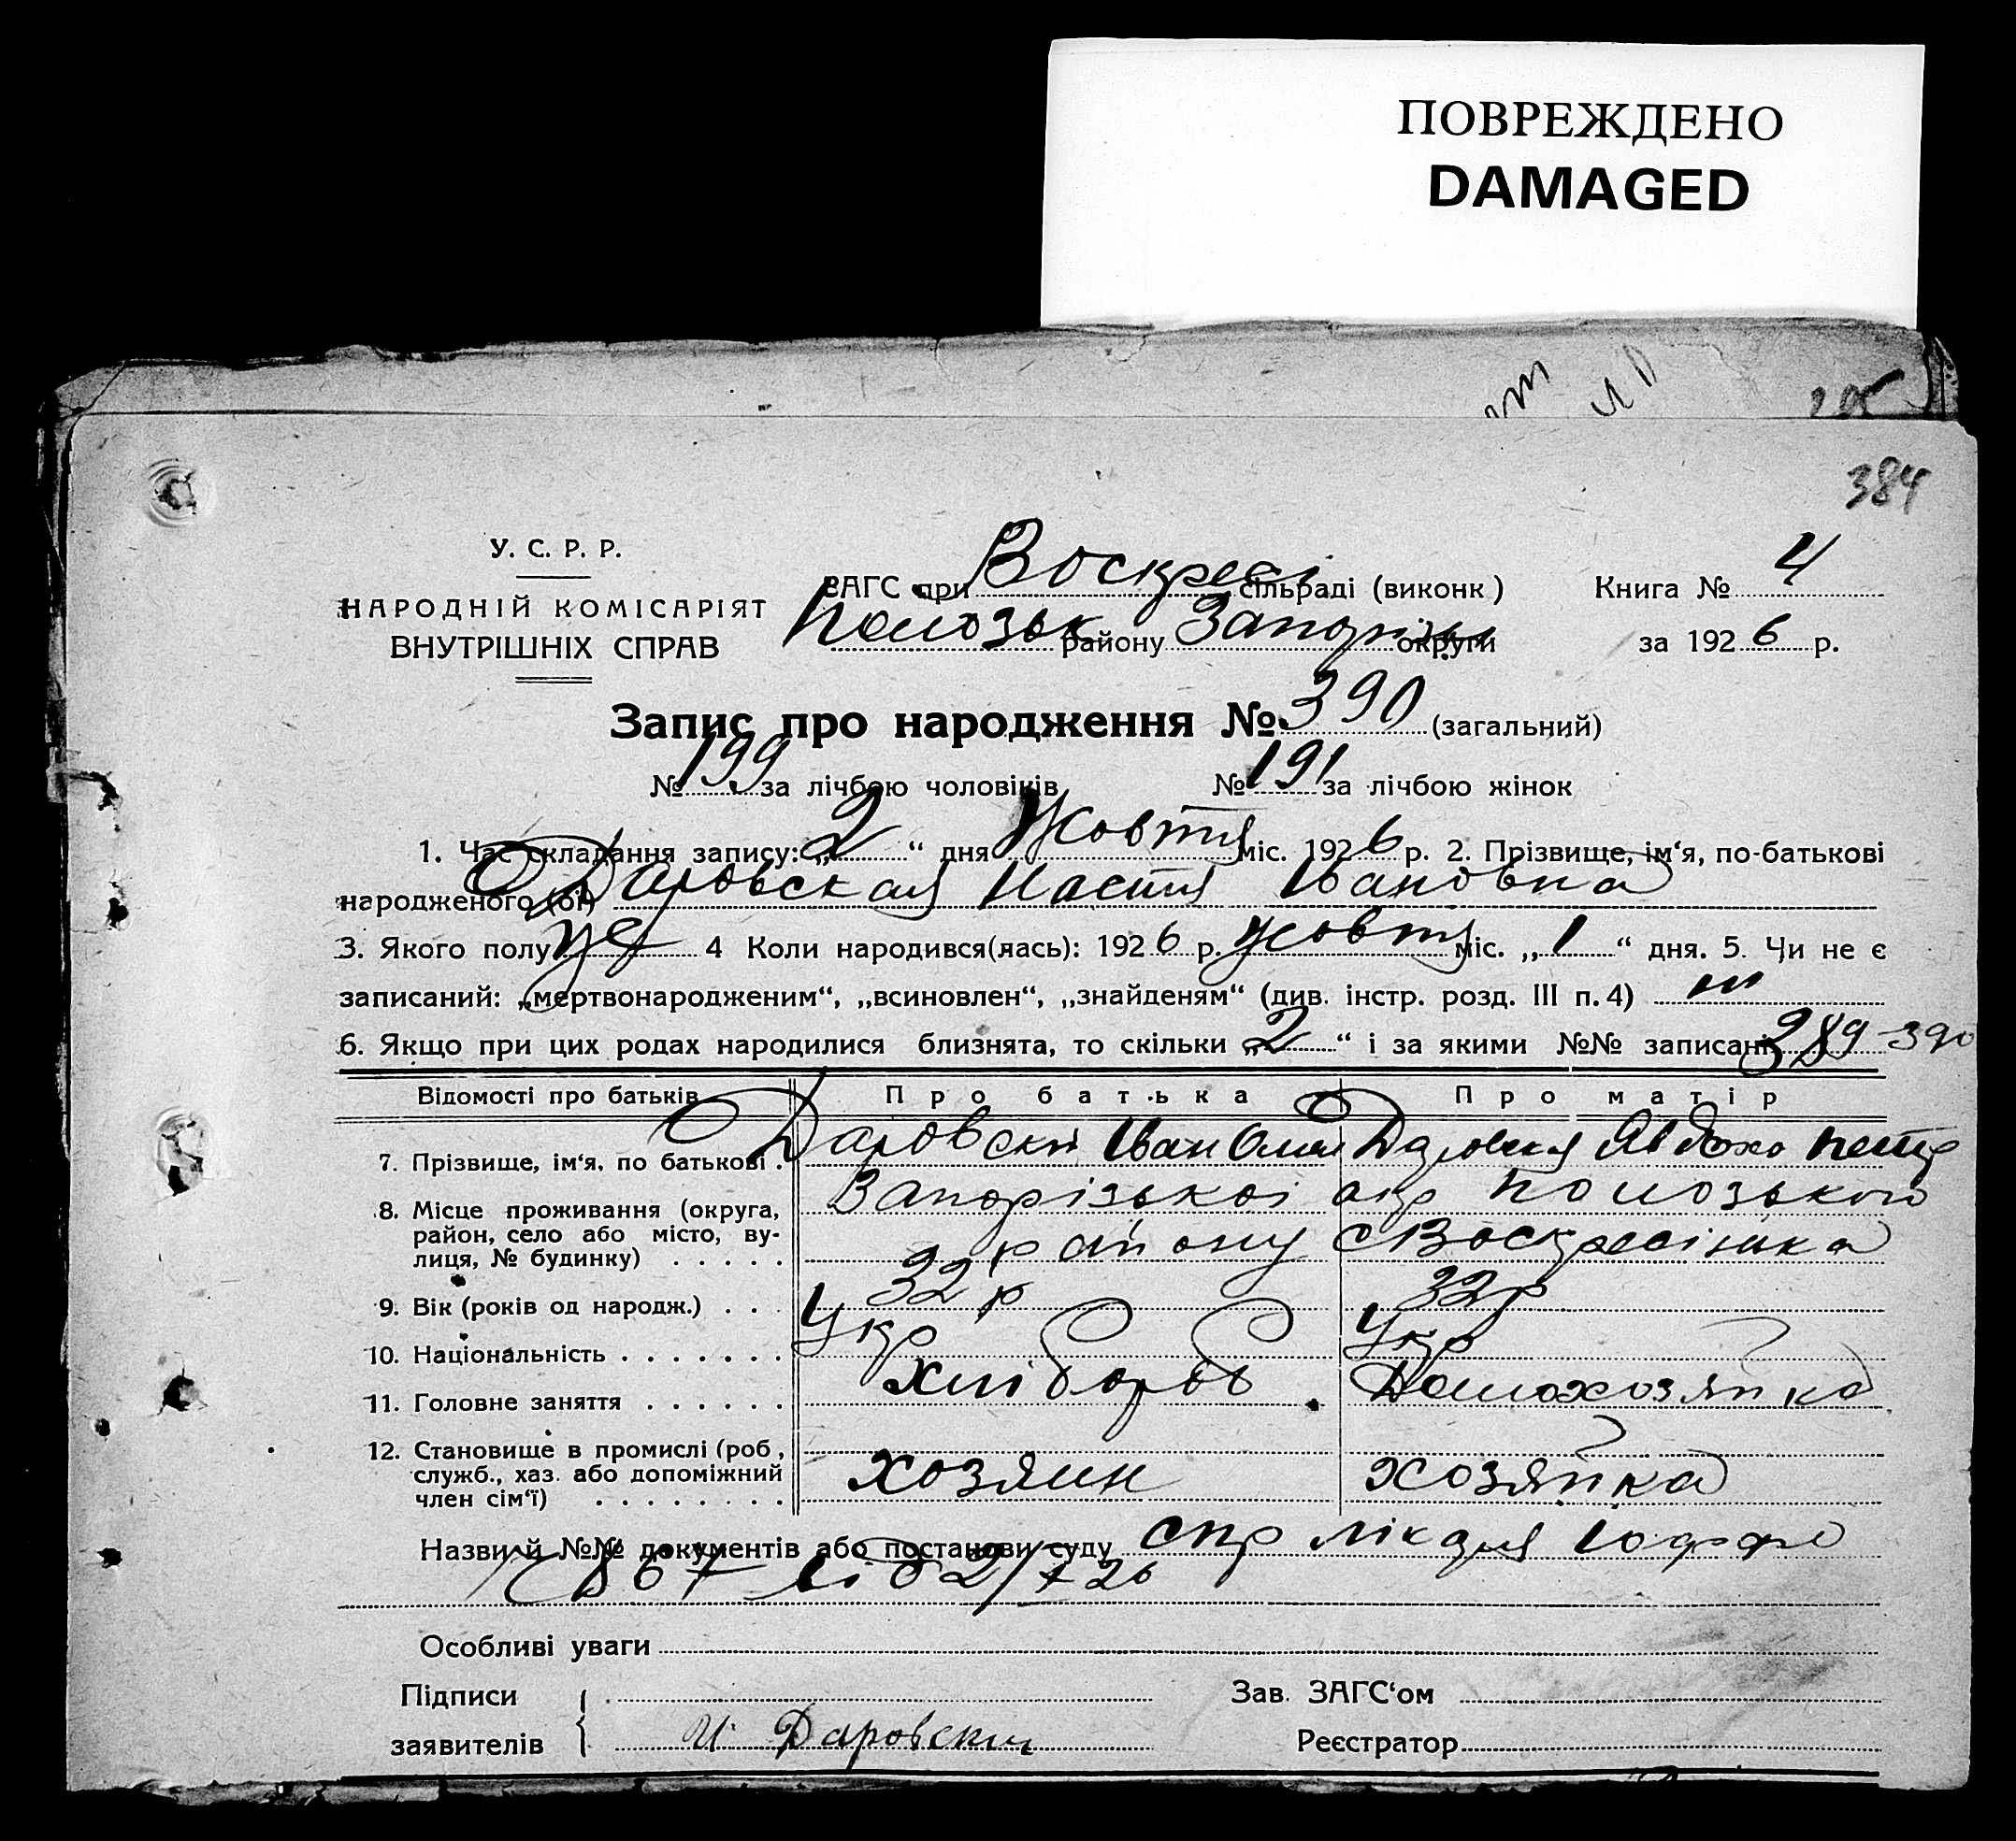 ПОВРЕЖДЕНО
DAMAGED
384
У. С. Р. Р.
НАРОДНІЙ КОМІСАРІЯТ
ВНУТРІШНІХ СПРАВ
ЗАГС при Воскресі сільраді (виконк) Книга № 4
Полозьк району Запоріз округи за 1926 р.
Запис про народження № 390 (загальний)
№ 199 за лічбою чоловіків № 191 за лічбою жінок
1. Час складання запису: „2“ дня Жовтня міс. 1926 р. 2. Прізвище, ім‘я, по-батькові
народженого (оі) Даровская Настя Івановна
3. Якого полу 4 Коли народився(лась): 1926 р. Жовтня міс. „1“ дня. 5. Чи не є
записаний: „мертвонародженим“, „всиновлен“, „знайденям“ (див. інстр. розд. III п. 4)
6. Якщо при цих родах народилися близнята, то скільки „2“ і за якими №№ записані 389-390
Відомості про батьків Про батька Про матір
7. Прізвище, ім‘я, по батькові . Даровский Іван Даровская Явдохо Петр
8. Місце проживання (округа, район, село або місто, вулиця, № будинку) . . . . . Запорізькоі окр Полозького
району с Воскресінка
9. Вік (років од народж.) . . . 32 р 32 р
10. Національність . . . . . . . Укр Укр
11. Головне заняття . . . . . . Хлібороб Домохозяйка
12. Становище в промислі (роб, служб., хаз. або допоміжний член сім‘ї) . . . . . . . . хозяин хозяйка
Назви й №№ документів або постанови суду спр лікдля Іоффе
№ 867 від 2/X 26
Особливі уваги
Підписи Зав. ЗАГС‘ом
заявителів И Даровский Реєстратор